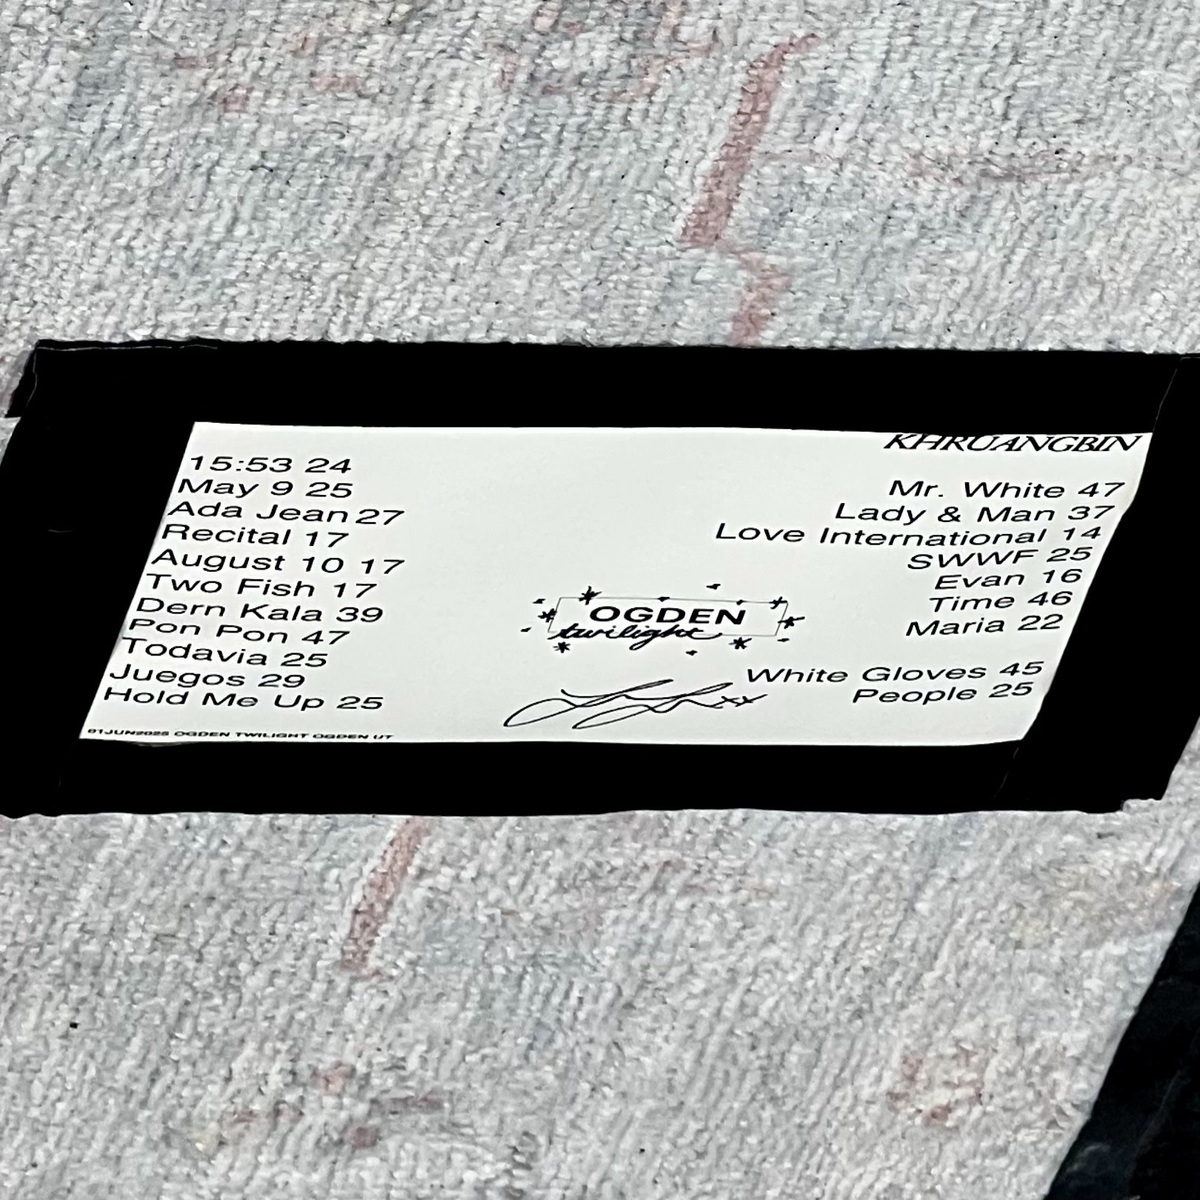 KHRUANGBIN
15:53 24
May 9 25
Ada Jean 27
Recital 17
August 10 17
Two Fish 17
Dern Kala 39
Pon Pon 47
Todavia 25
Juegos 29
Hold Me Up 25
01JUN2025 OGDEN TWILIGHT OGDEN UT
OGDEN
twilight
Mr. White 47
Lady & Man 37
Love International 14
SWWF 25
Evan 16
Time 46
Maria 22
White Gloves 45
People 25